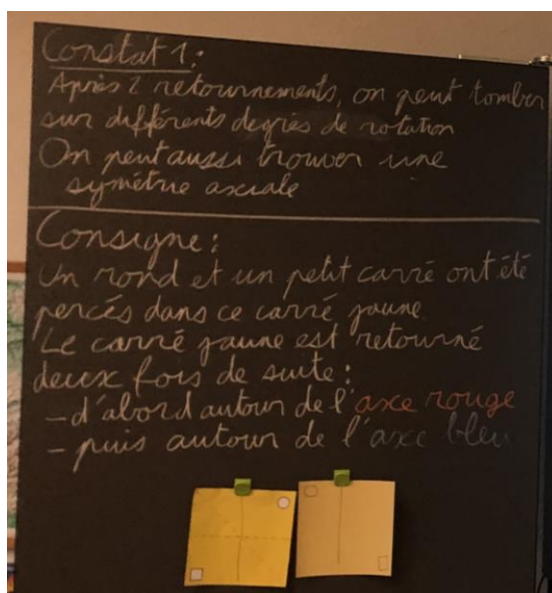 Constat 1:
Après 2 retournements, on peut tomber
sur différents degrés de rotation
On peut aussi trouver une
symétrie axiale
Consigne:
Un rond et un petit carré ont été
percés dans ce carré jaune.
Le carré jaune est retourné
deux fois de suite:
- d'abord autour de l'axe rouge
- puis autour de l'axe bleu